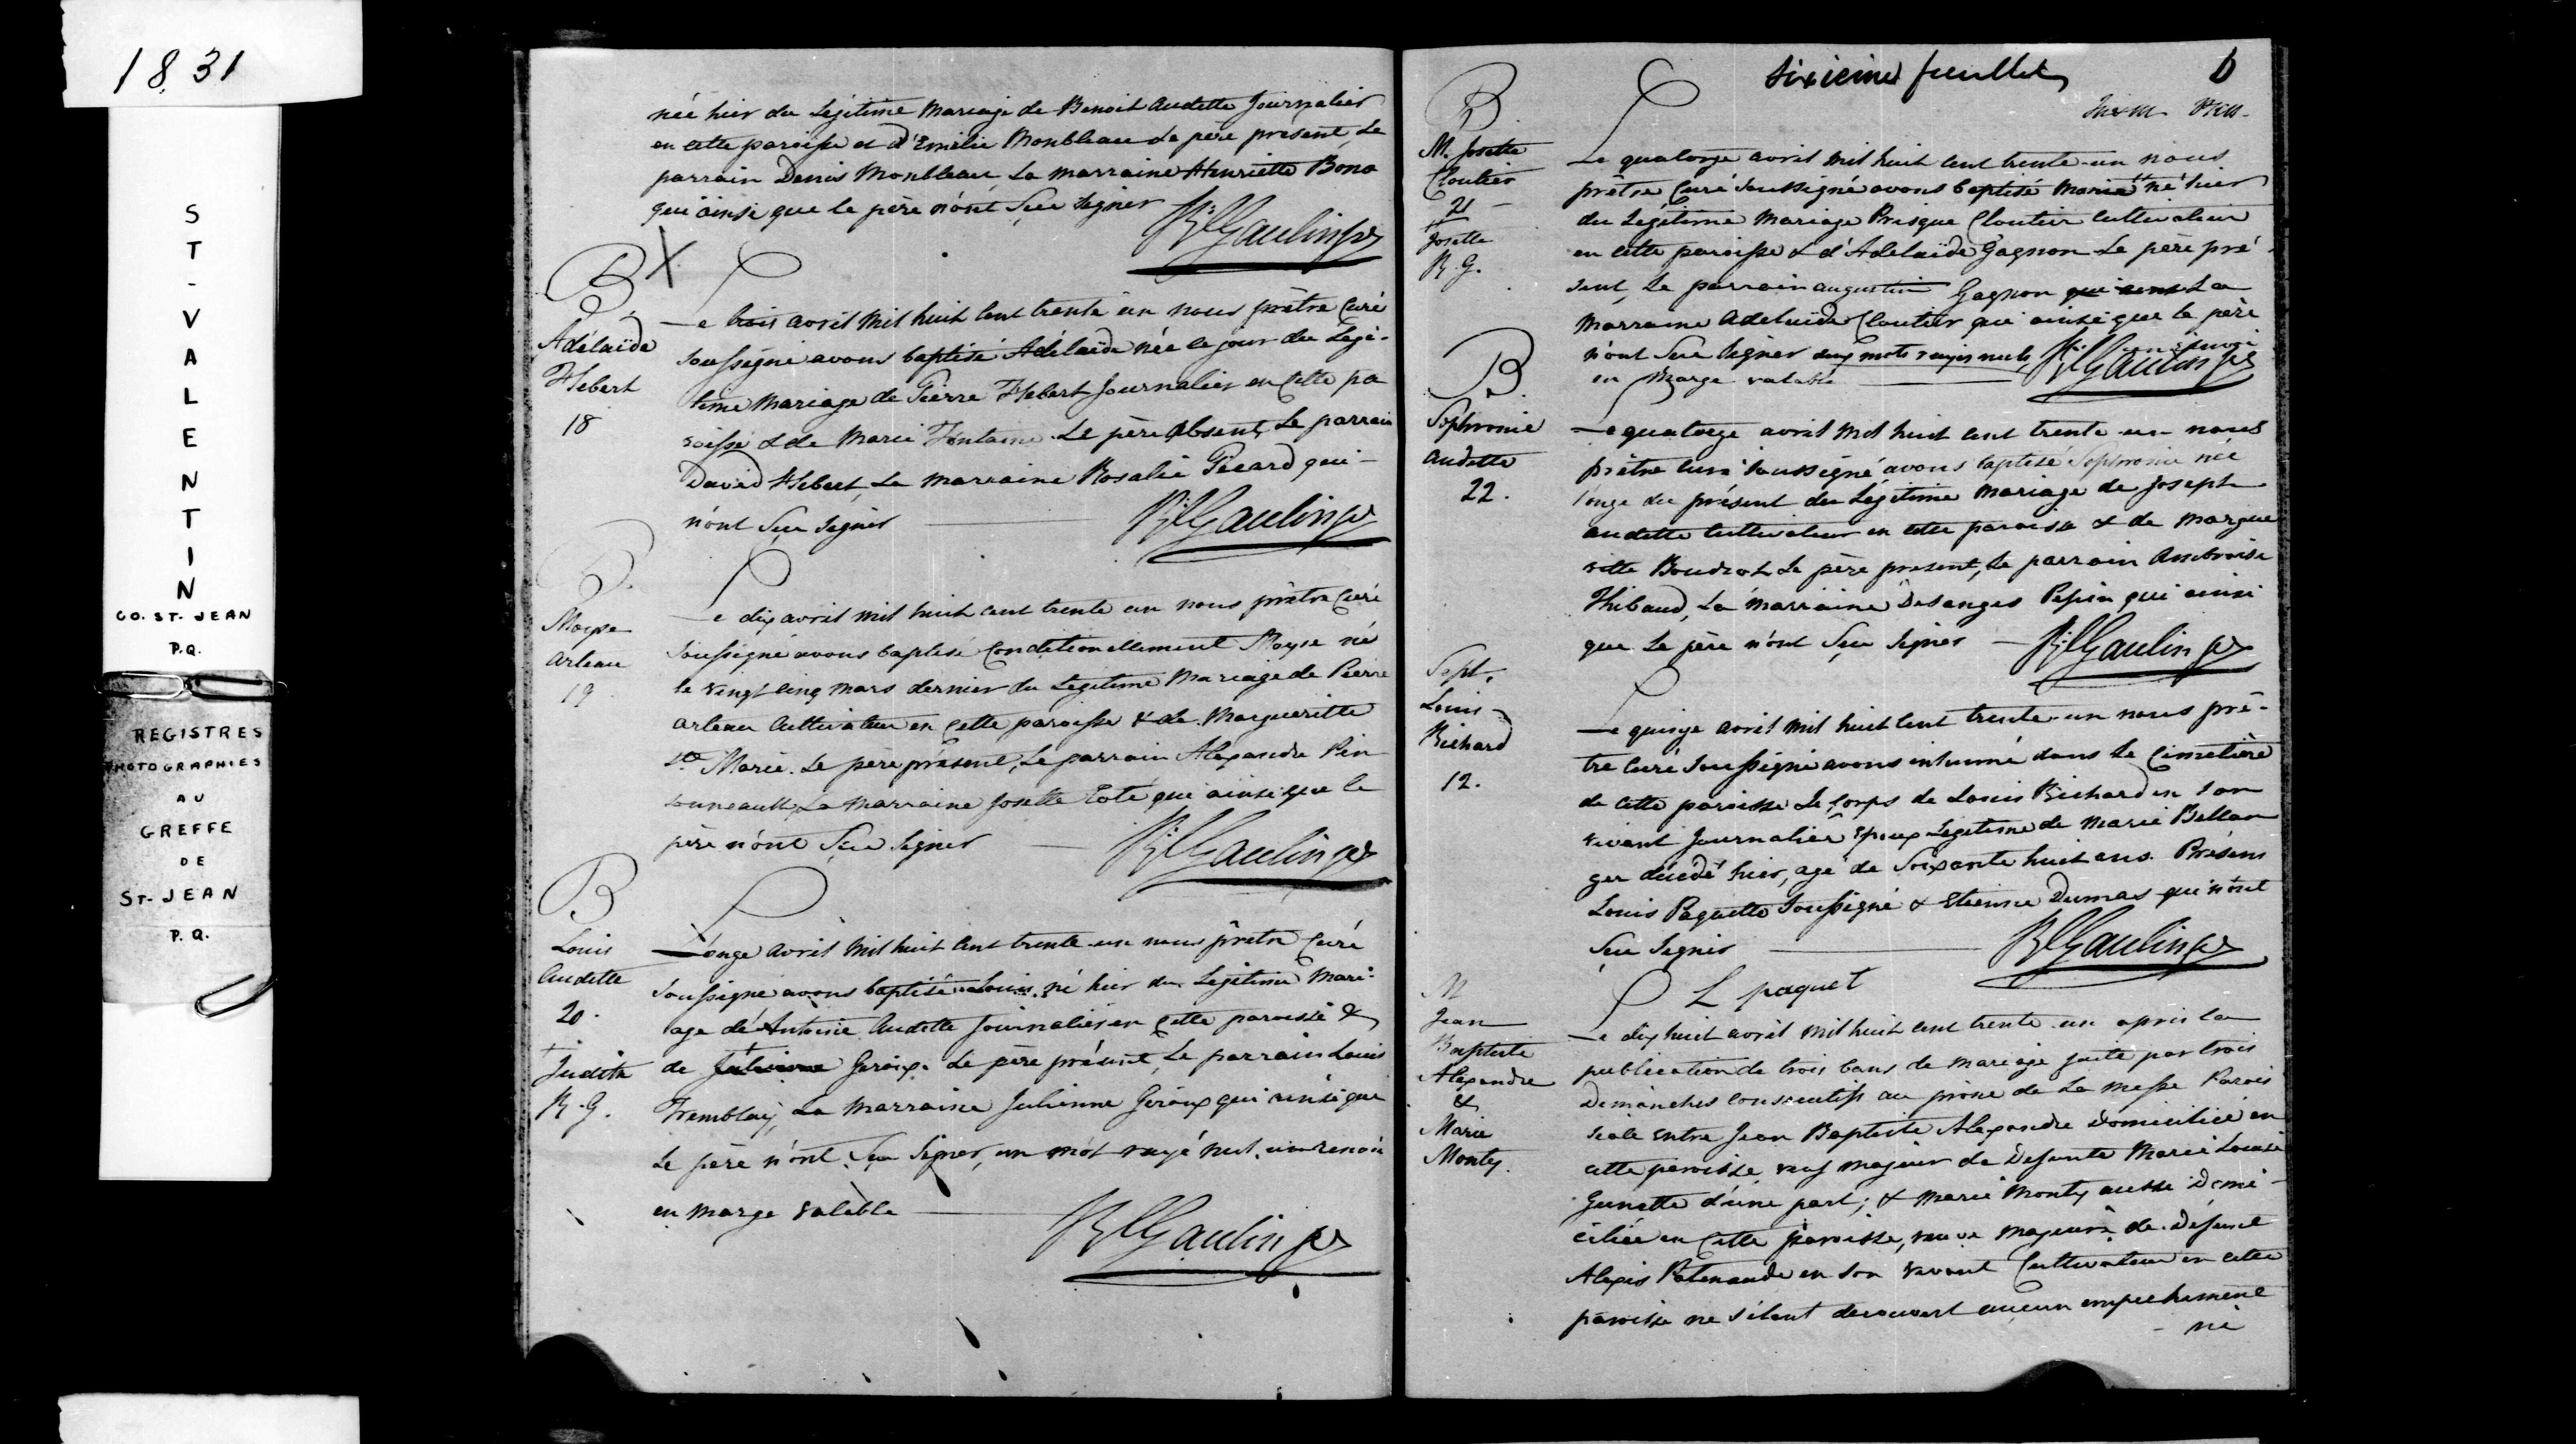 1831
ST-VALENTIN
CO. ST. JEAN
P.Q.
REGISTRES
PHOTOGRAPHIES
AU
GREFFE
DE
ST-JEAN
P.Q.
née hier du Légitime Mariage de Benoit Audette Journalier
en cette paroisse et d'Emilie Monbleau Le père présent, Le
parrain Denis Monbleau La marraine Henriette Bona
qui ainsi que le père n'ont Sçu signer
B
Adélaïde
Hebert
18
Le trois avril mil huit cent trente un nous prêtre Curé
Soussigné avons baptisé Adélaïde née ce jour du Légi-
time mariage de Pierre Hebert Journalier en cette pa
roisse & de Marie Fontaine. Le père Absent, Le parrain
David Hebert, La marraine Rosalie Picard qui
n'ont Sçu signer
B.
Moyse
Arleau
19
Le dix avril mil huit cent trente un nous prêtre Curé
Soussigné avons baptisé Conditionellement Moyse né
le vingt cinq mars dernier du Légitime Mariage de Pierre
Arleau Cultivateur en Cette paroisse & de Margueritte
Ste Marie. Le père présent, Le parrain Alexandre Pin
souneault, La marraine Josette Coté qui ainsi que le
père n'ont Sçu Signer
B
Louis
Audette
20.
L'onze avril Mil huit cent trente un nous prêtre Curé
Soussigné avons baptisé Louis né hier du Légitime Mari-
age de Antoine Audette Journalier en Cette paroisse &
de Julienne Geroux. Le père présent, Le parrain Louis
Tremblay, La Marraine Julienne Geroux qui ainsi que
Le père n'ont Sçu Signer, un mot rayé nul, un renvoi
en marge valable
+
Judith
sixieme feuillet
6
B
M. Josette
Cloutier
21
Le quatorze avril mil huit cent trente-un nous
prêtre Curé Soussigné avons baptisé Marie né hier
du Legitime Mariage Prisque Cloutier Cultivateur
en Cette paroisse & d'Adelaide Gagnon Le père pré
sent, Le parrain augustin Gagnon La
Marraine Adelaide Cloutier qui ainsi que le père
n'ont Sçu signer deux mots rayés nuls, un renvoi
en Marge valable
+
Josette
B.
Sophronie
Audette
22.
Le quatorze avril Mil huit cent trente un nous
prêtre curé soussigné avons baptisé Sophronie née
l'onze du présent du Légitime Mariage de Joseph
audette Cultivateur en cette paroisse & de Margue
ritte Boudrot Le père present, Le parrain Ambroise
Thibaud, La Marraine Desanges Pepin qui ainsi
que Le père n'ont Sçu signer
Sept.
Louis
Richard
12.
Le quinze avril mil huit cent trente-un nous prê-
tre Curé Soussigné avons inhumé dans Le Cimetière
de Cette paroisse Le Corps de Louis Richard en son
vivant Journalier Epoux Legitime de Marie Bellan
ger décédé hier, agé de Soixante huit ans. Présens
Louis Paquette Soussigné & Etienne Dumas qui n'ont
Sçu Signer
L paquet
M
Jean
Baptiste
Alexandre
&
Marie
Monty.
Le dix huit avril Mil huit cent trente-un après la
publication de trois bans de mariage faite par trois
Dimanches Consécutifs au prône de La messe Parois
siale entre Jean Baptiste Alexandre Domicilié en
cette paroisse, veuf majeur de Défunte Marie Louise
d'une part; & Marie Monty aussi Domi-
ciliée en Cette paroisse, veuve majeure de Défunt
Alexis Patenaude en son vivant Cultivateur en cette
paroisse ne s'étant decouvert aucun empechement
ni